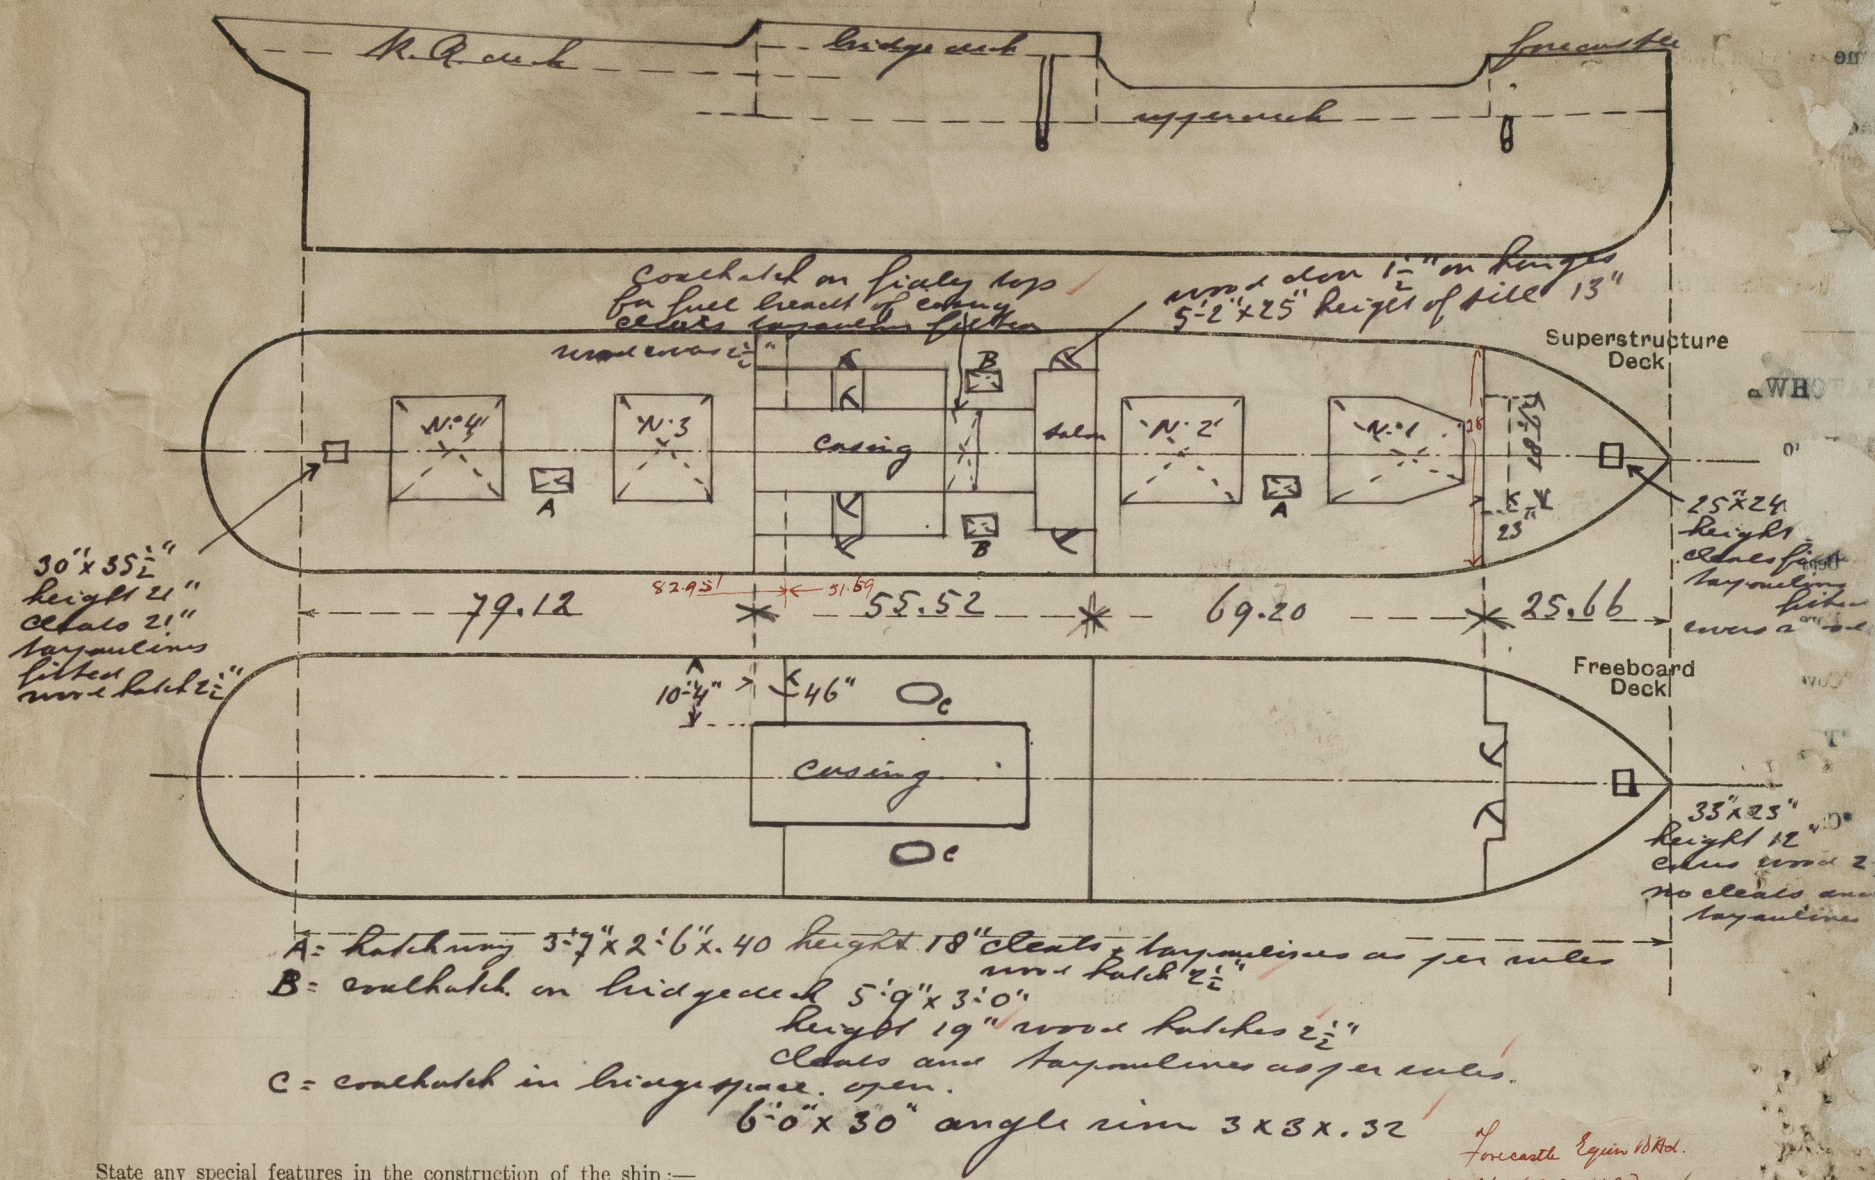 R.Q. deck
bridge deck
forecastle
upperdeck
coalhatch on fidly top
for full breadt of casing
cleats tarpaulins fitted
wood covers 2½"
wood door 1½" on hinges
5'-2" x 25" height of sill 13"
Superstructure
Deck
No 4
N. 3
casing
salon
N. 2
No 1
A
A
B
B
28'
23"
30" x 35½"
height 21"
cleats 21"
tarpaulins
fitted
wood hatch 2½"
25" x 24
height
cleats
tarpaulins
covers
82.95'
51.69
79.12
55.52
69.20
25.66
Freeboard
Deck
10'-4"
46"
C
casing
C
33" x 23"
height 12"
covers wood 2
no cleats and
tarpaulines
A = hatchway 3'-7" x 2'-6" x .40 height 18" cleats & tarpaulines as per rules
wood hatch 2½"
B = coalhatch on bridgedeck 5'-9" x 3'-0"
height 19" wood hatches 2½"
cleats and tarpoulines as per rules.
C = coalhatch in bridgespace. open.
6'-0" x 30" angle rim 3 x 3 x .32
Forecastle Equiv Bhd.
State any special features in the construction of the ship:—